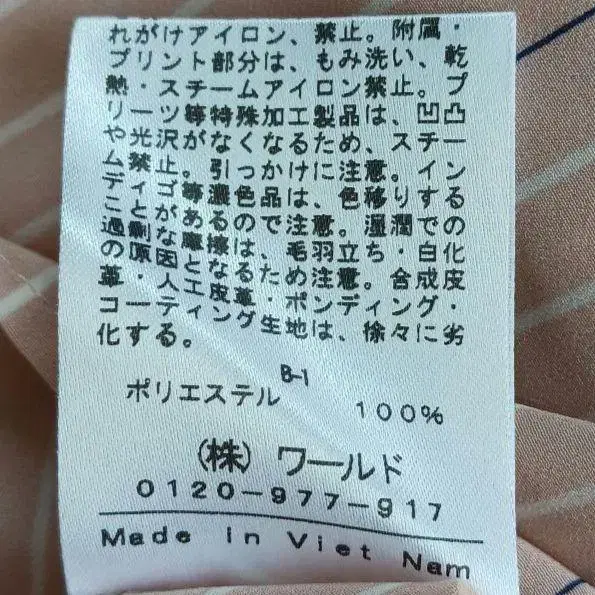 れがけアイロン、禁止。附属・
プリント部分は、もみ洗い、乾
熱・スチームアイロン禁止。プ
リーツ等特殊加工製品は、凹凸
や光沢がなくなるため、スチー
ム禁止。引っかけに注意。イン
ディゴ等濃色品は、色移りする
ことがあるので注意。湿潤での
過剰な摩擦は、毛羽立ち・白化
の原因となるため注意。合成皮
革・人工皮革・ボンディング・
コーティング生地は、徐々に劣
化する。
B-1
ポリエステル
100%
(株) ワールド
0120-977-917
Made in Viet Nam